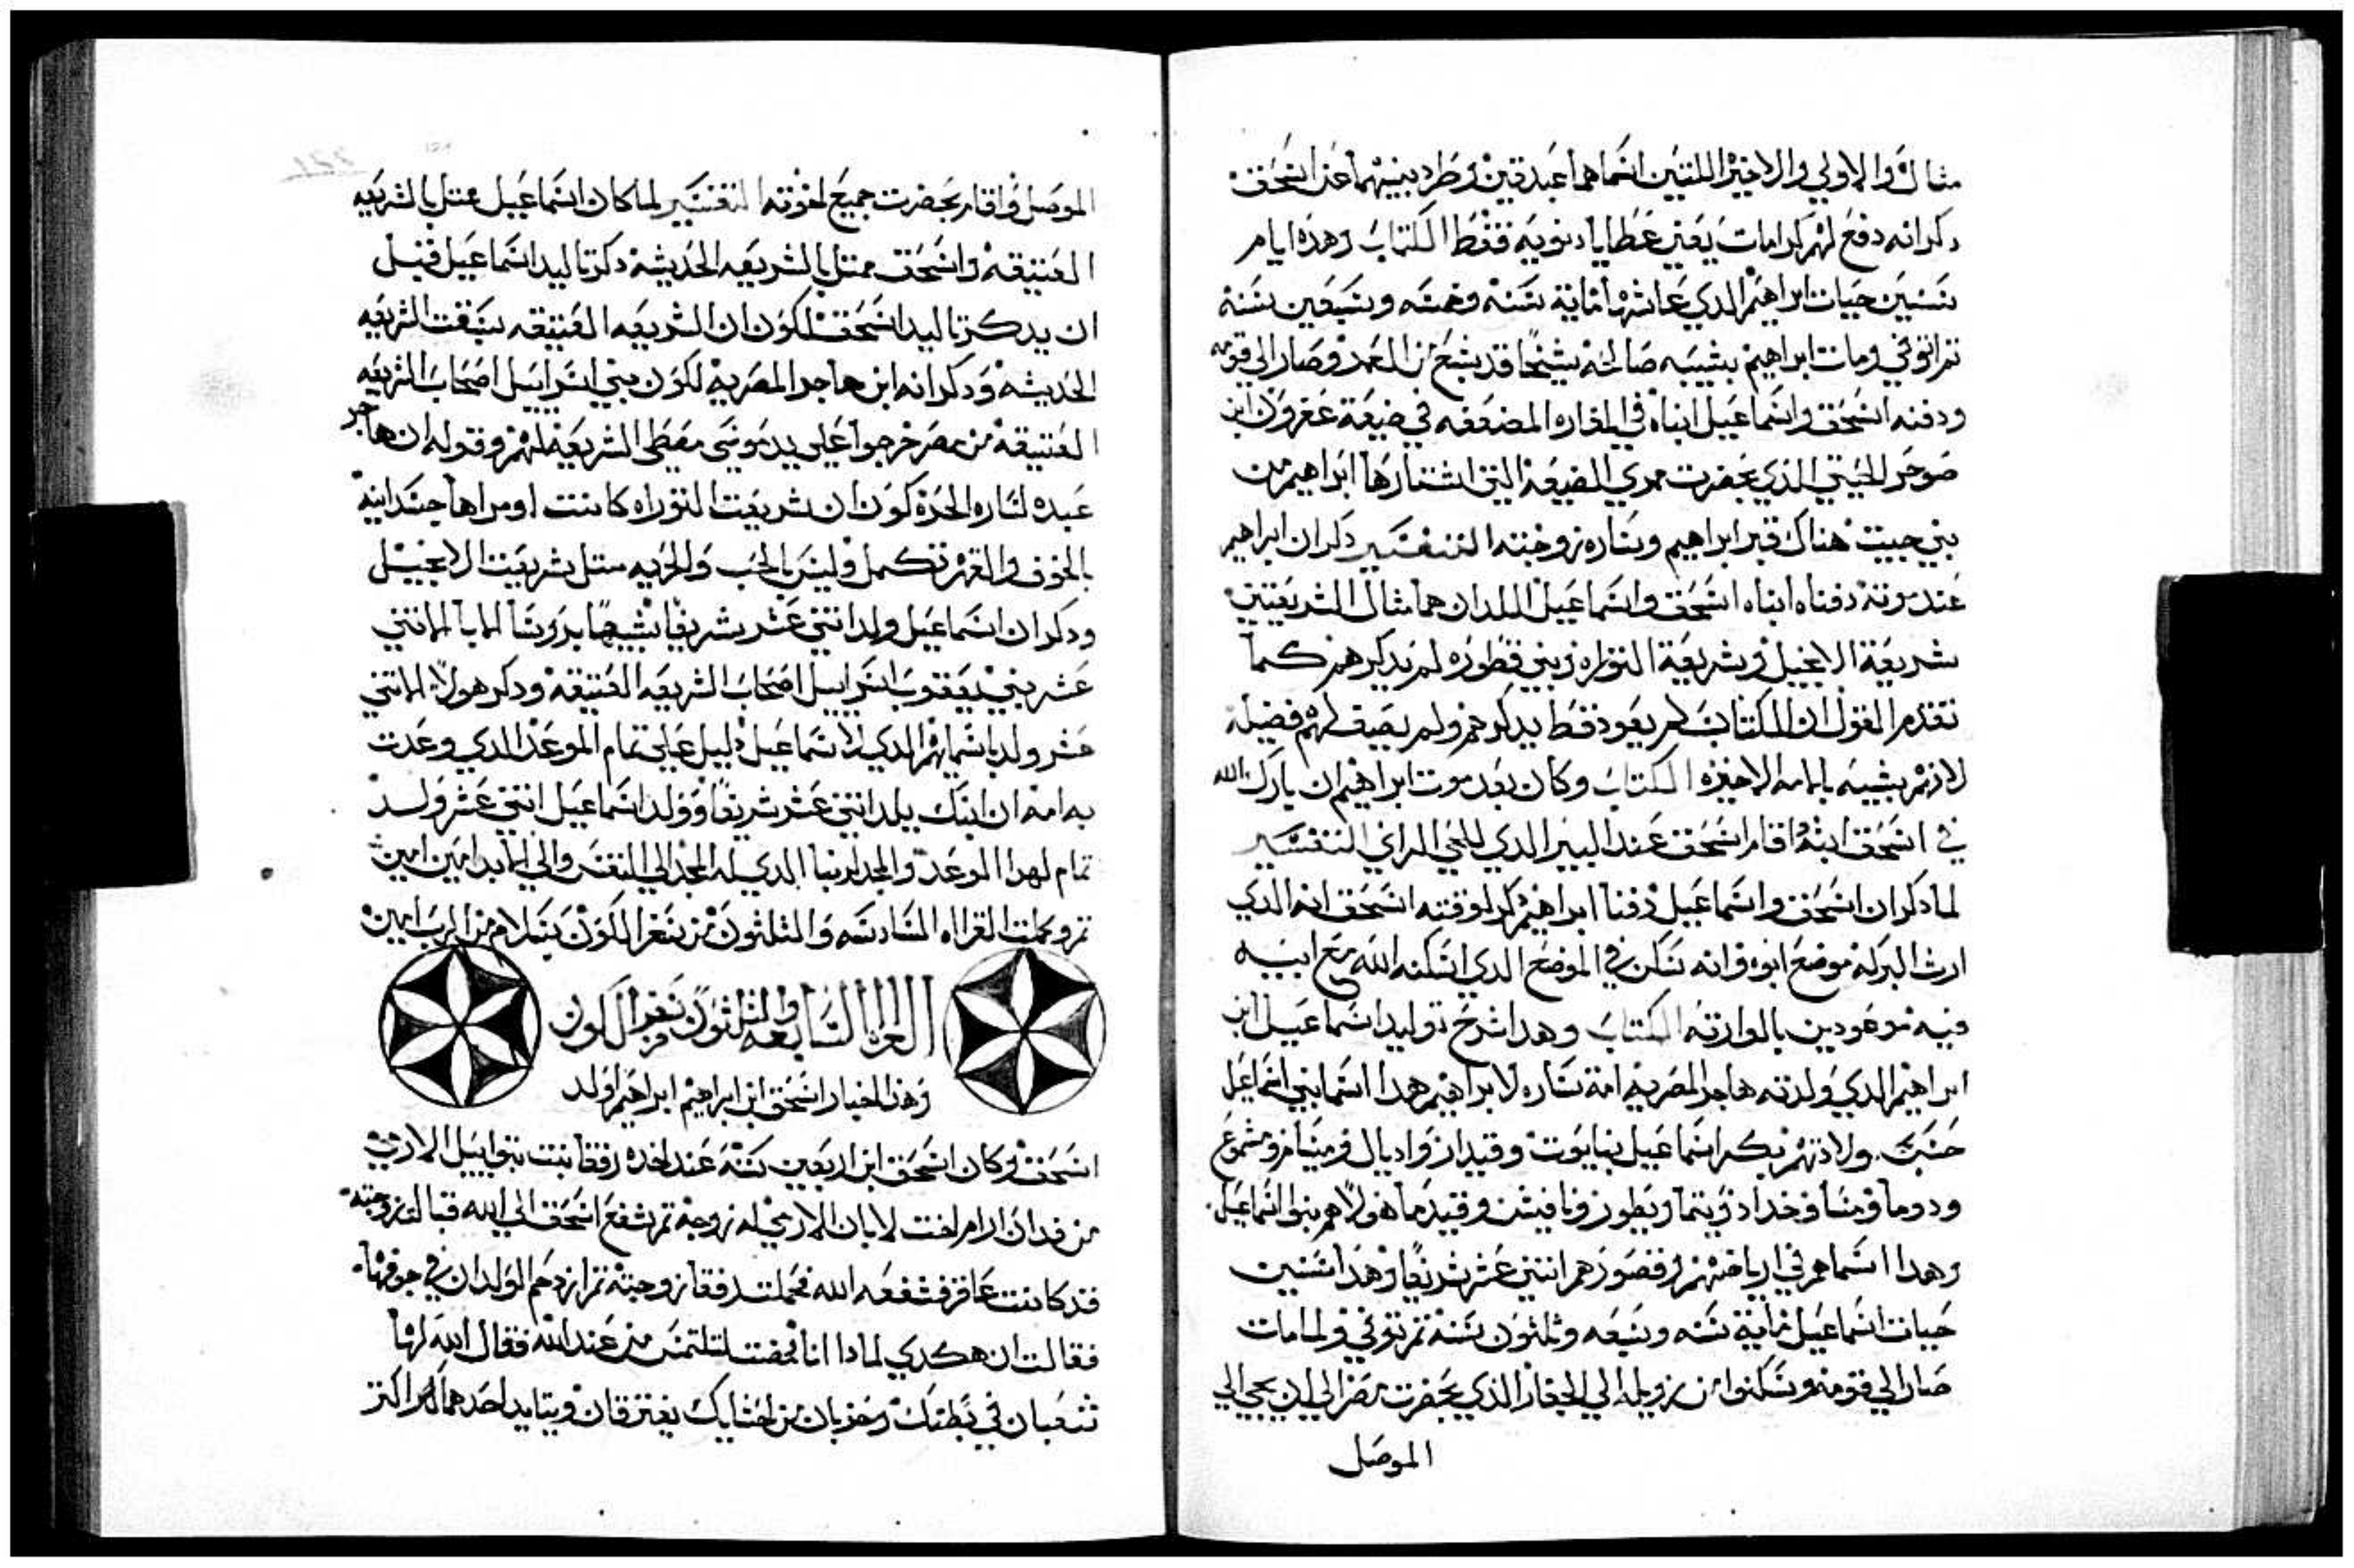 مثال والاولي والاخيرا اللتين انما هما عبدتين وطرد بنيهما عن اسحق
دكر انه دفع لهم كرامات يعني عطايا دنويه فقط الكتاب وهذه ايام
سنين حيات ابراهيم الدي عاشها ماية سنه وخمسه وسبعين سنة
تم اتوفي ومات ابراهيم بشيبه صالحة شيخا قد شبع من العمد وصار الي قومه
ودفنه اسحق واسماعيل ابناه في المغاره المضعفه في ضيعة عفرون ابن
صوحر الحيتي الذي بحضرت ممري الضيعه التي اشتارها ابراهيم من
بني حيت هناك قبر ابراهيم وساره زوجته التفسير دكر ان ابراهيم
عند موته دفناه ابناه اسحق واسماعيل اللدان هما مثال الشريعتين
شريعة الانجيل وشريعة التوراه وبني قطوره لم يدكرهم كما
تقدم القول ان الكتاب لم يعود فقط يدكرهم ولم يضيف لهم فضيلة
لانهم بشبه بامامه الاخيره الكتاب وكان بعد موت ابراهيم ان بارك الله
في اسحق ابنه واقام اسحق عند البير الدي للحي الراني التفسير
لما دكر ان اسحق واسماعيل دفنا ابراهيم دكر لوقته اسحق انه الدي
ارث البركة موضع ابوه وانه سكن في الموضع الدي اسكنه الله مع ابيه
فيه موعودين بالوارته الكتاب وهدا شرح تواليد اسماعيل ابن
ابراهيم الدي ولدته هاجر المصريه امة ساره لابراهيم هدا اسما بني اسماعيل
حسب ولادتهم بكر اسماعيل نبايوت وقيدار واديال ومبسام ومشموع
ودوما ومسا وخداد وتيما ويطور ونافيش وقيدما هولا هم بنوا اسماعيل
وهدا اسماهم في ارياضهم وقصورهم اتني عشر شريفا وهدا سنين
حيات اسماعيل ماية سنه وسبعه وثلثون سنة تم توفي ولما مات
صار الي قومه وسكنوا من زويله الي الجفار الذي بحضرت مصر الي ان يجي الي
الموصل
الموصل واقام بحضرت جميع اخوته التفسير لما كان اسماعيل ممتل بالشريعه
العتيقه واسحق ممتل بالشريعه الحديثه دكر تاليد اسماعيل قبل
ان يدكر تاليد اسحق لكون ان الشريعه العتيقه سبقت الشريعه
الحديثه ودكر انه ابن هاجر المصريه لكون بني اسراييل اصحاب الشريعه
العتيقة من مصر خرجوا علي يد موسي معطي الشريعة لهم وقوله ان هاجر
عبده لساره الحره كون ان شريعت التوراه كانت اومراها جسدانيه
بالخوف والقهر تكمل وليس بالحب والحريه متل شريعت الانجيل
ودكر ان اسماعيل ولد اتني عشر شريفا شبيها بروسا الابا الاتني
عشر بني يعقوب اسراييل اصحاب الشريعه العتيقة ودكر هولا الاتني
عشر ولد باسمايهم الدي لاسماعيل دليل علي تمام الموعد الدي وعدت
به امه ان ابنك يلد اتني عشر شريفا وولد اسماعيل اتني عشر ولد
تمام لهدا الموعد والمجد لربنا الدي له المجد الي النفس والي الابد امين امين
تم وكملت القراه السادسه والثلثون من سفر الكون بسلام من الرب امين
القراه السابعه والثلثون من سفر الكون
وهذا اخبار اسحق ابن ابراهيم ابراهيم اولد
اسحق وكان اسحق ابن اربعين سنة عند اخده رفقا بنت بتواييل الارمي
من فدان ارام اخت لابان الارمي له زوجة تم شفع اسحق الي الله قبالة زوجته
قد كانت عاقر فشفعه الله فحملت رفقا زوجته تم ازدحم الولدان في جوفها
فقالت ان هكدي لمادا انا فمضت لتلتمس من عند الله فقال الله لها
شعبان في بطنك وحزبان من احشايك يفترقان ويتايد احدهما اكتر